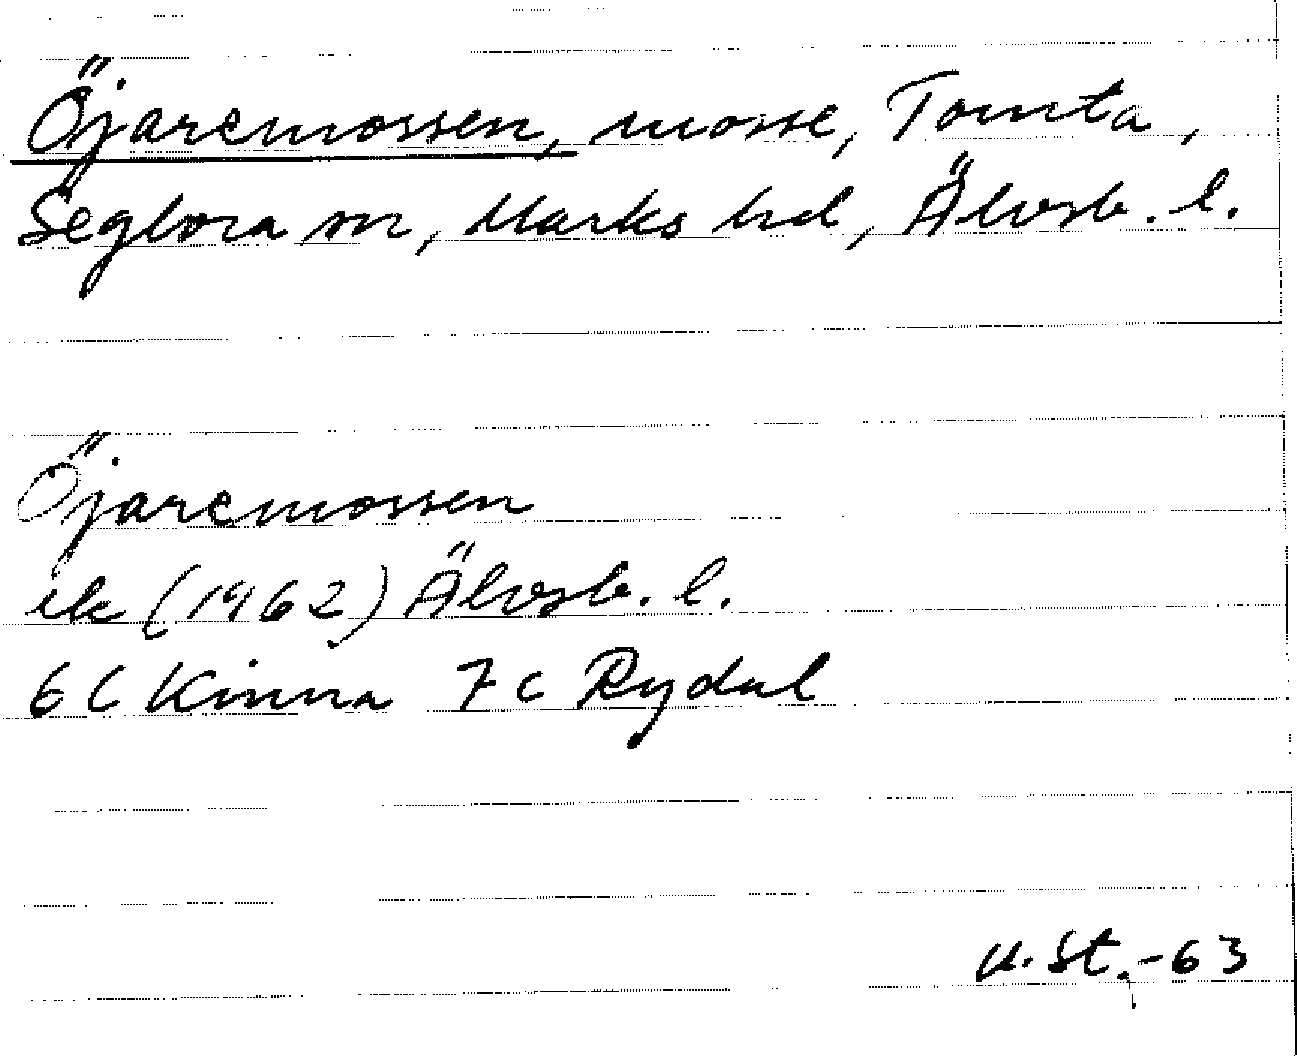 Öjaremossen, mosse, Tomta,
Seglora sn, Marks hd, Älvsb. l.
Öjaremossen
ek (1962) Älvsb. l.
6C Kinna 7c Rydal
u. St. -63